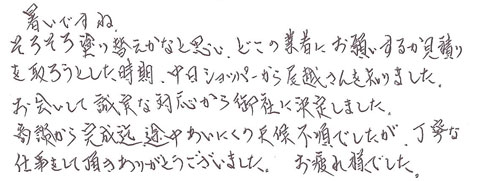 暑いですね。
そろそろ塗り替えかなと思い、どこの業者にお願いするか見積り
を取ろうとした時期、中日ショッパーから尾越さんを知りました。
お会いして誠実な対応から御社に決定しました。
商談から完成迄、途中あいにくの天候不順でしたが、丁寧な
仕事をして頂きありがとうございました。 お疲れ様でした。